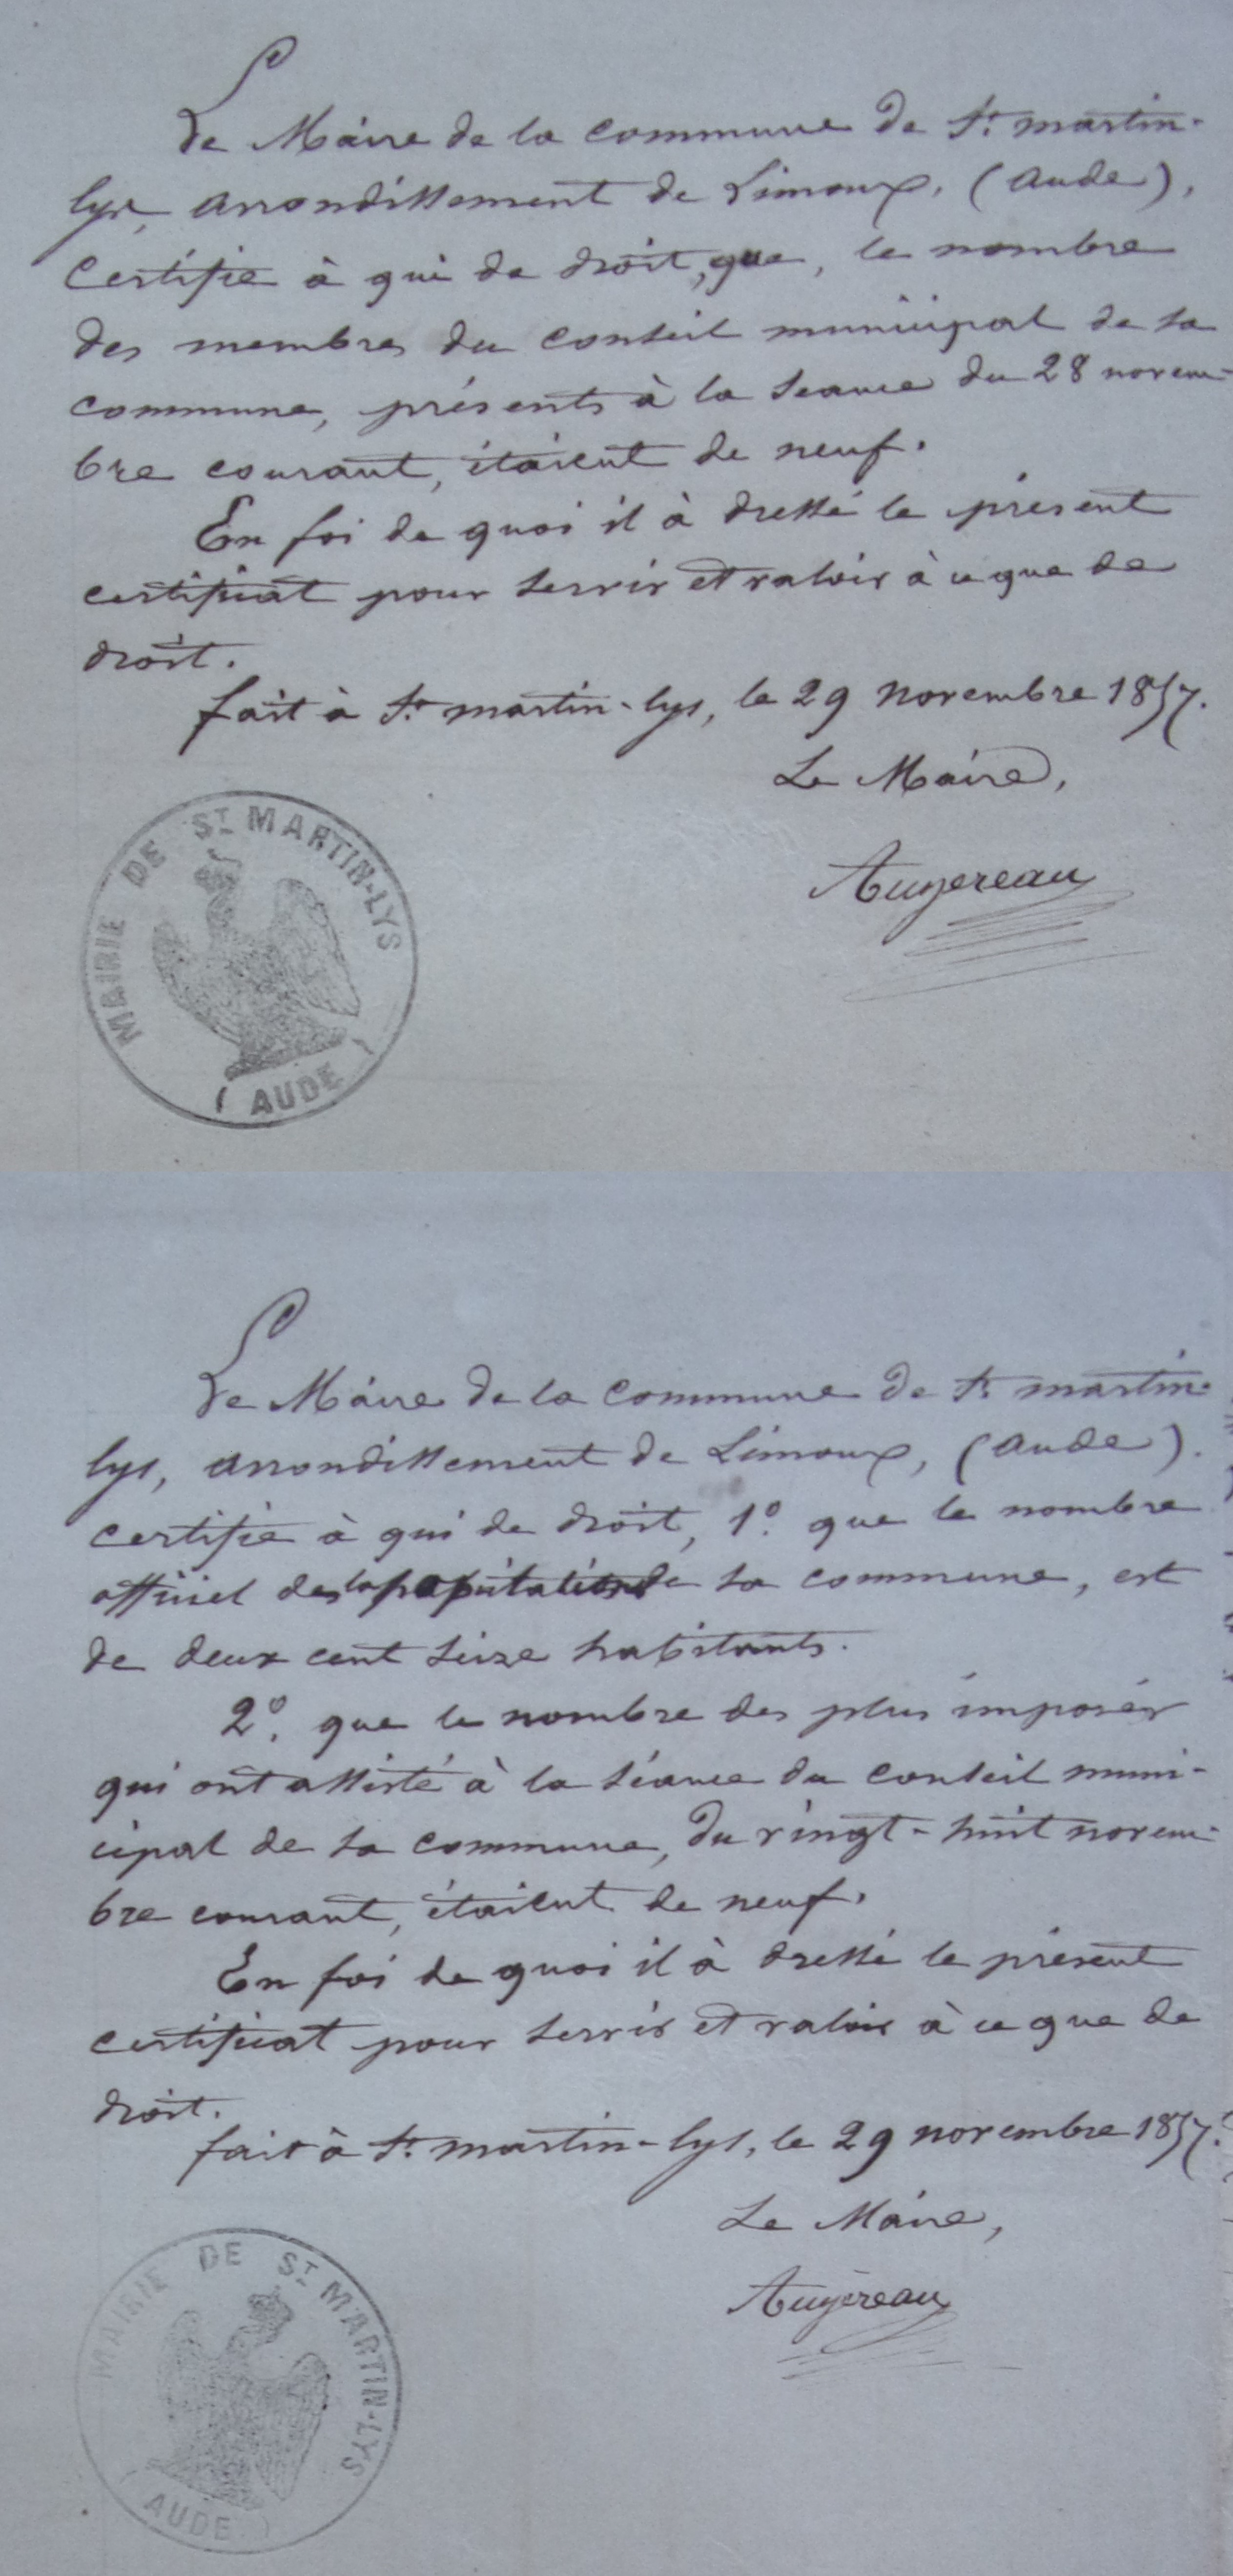 Le Maire de la commune de St. martin-
lys, arrondissement de Limoux, (Aude),
certifie à qui de droit, que, le nombre
des membres du conseil municipal de sa
commune, présents à la seance du 28 novem-
bre courant, étaient de neuf.
En foi de quoi il à dressé le présent
certificat pour servir et valoir à ce que de
droit.
fait à St. martin-lys, le 29 novembre 1857.
Le Maire,
Augereau
MAIRIE DE ST MARTIN-LYS
( AUDE )
Le Maire de la commune de St. martin-
lys, arrondissement de Limoux, (Aude).
certifie à qui de droit, 1º. que le nombre
officiel de la population de sa commune, est
de deux cent seize habitants.
2º. que le nombre des plus imposés
qui ont assisté à la séance du conseil muni-
cipal de sa commune, du vingt-huit novem-
bre courant, étaient de neuf.
En foi de quoi il à dressé le présent
certificat pour servir et valoir à ce que de
droit.
fait à St. martin-lys, le 29 novembre 1857.
Le Maire,
Augereau
MAIRIE DE ST MARTIN-LYS
( AUDE )